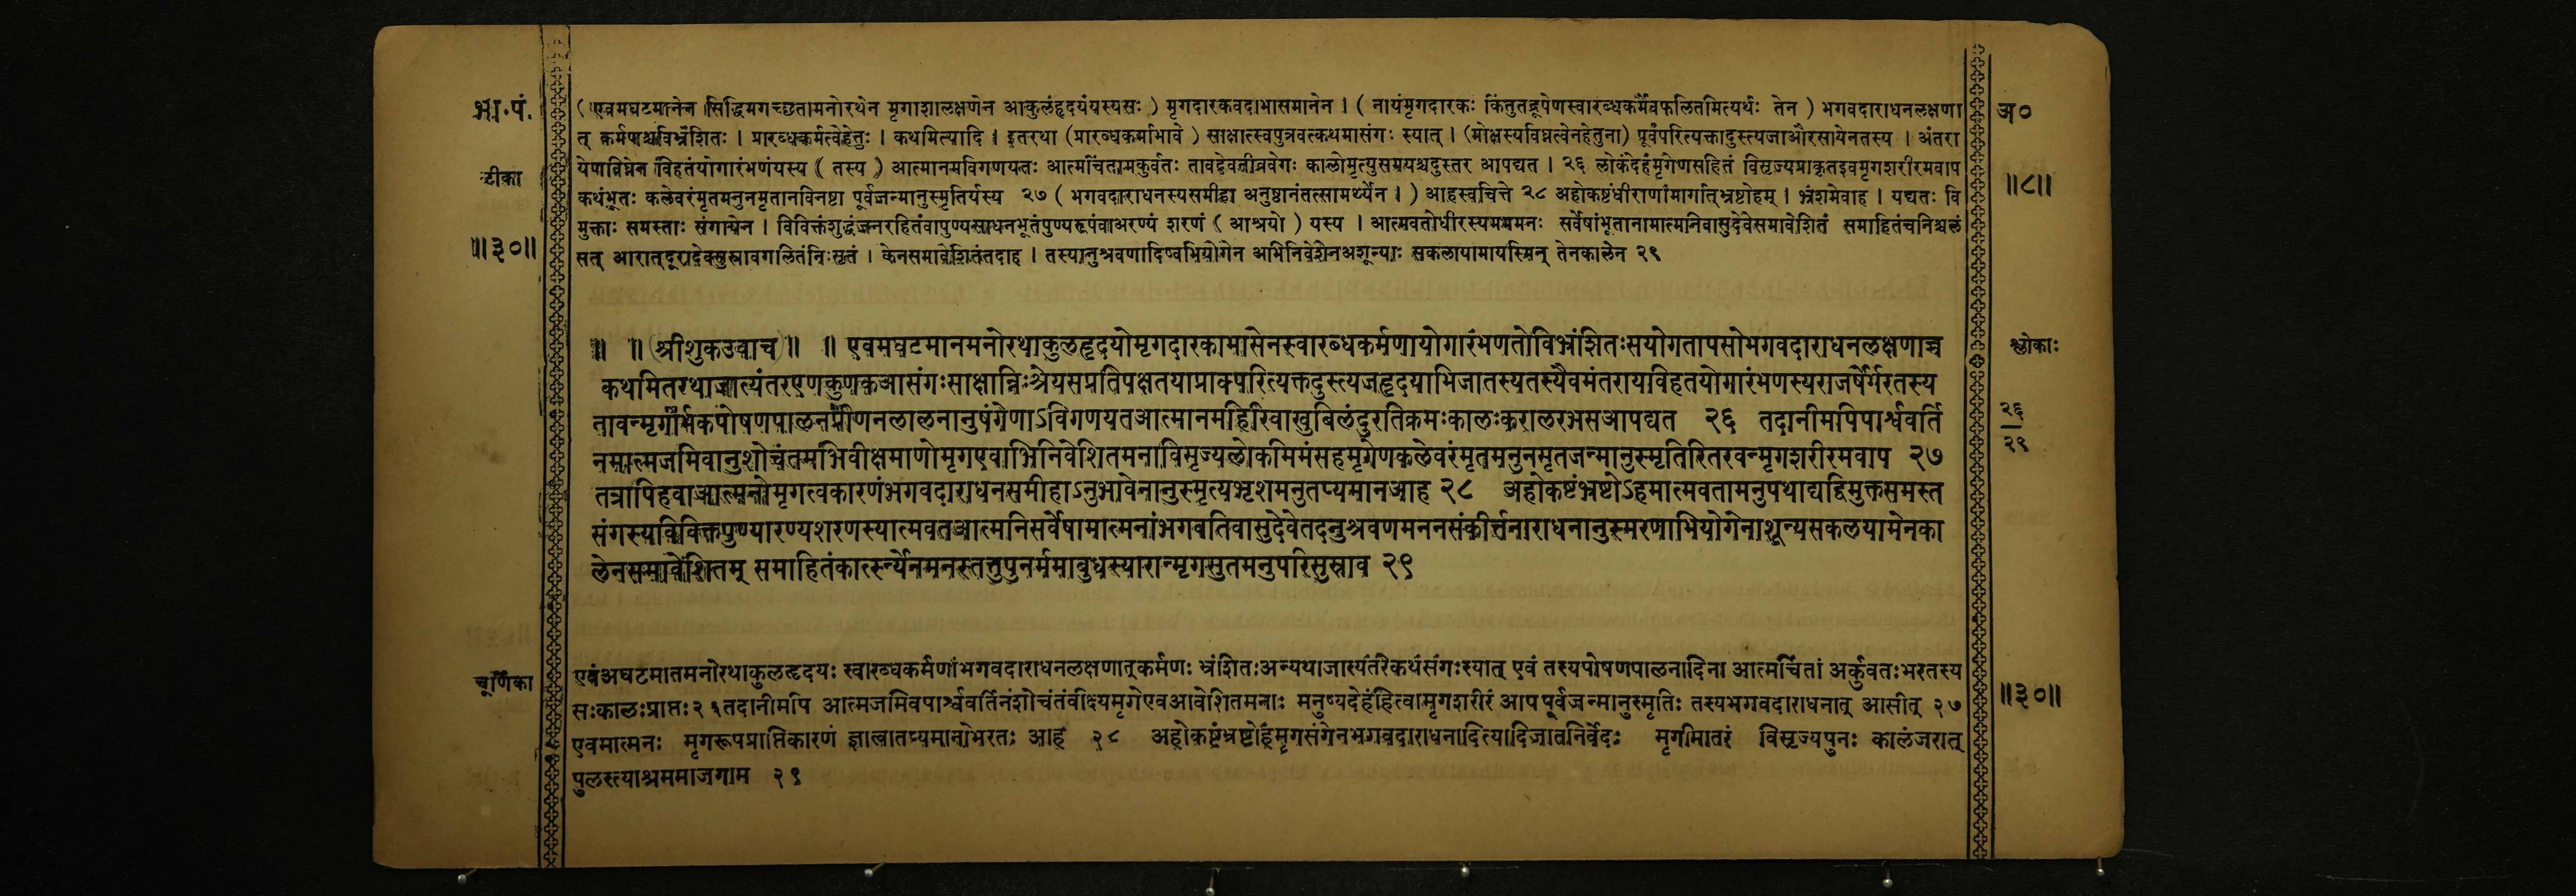 भा.पं.
(एवमघटमानेन सिद्धिमगच्छतामनोरथेन मृगाशालक्षणेन आकुलंहृदयंयस्यसः) मृगदारकवदाभासमानेन । (नायंमृगदारकः किंतुतद्रूपेणस्वारब्धकर्मैवफलितमित्यर्थः तेन) भगवदाराधनलक्षणा
अ०
त् कर्मणश्चविभ्रंशितः । प्रारब्धकर्मत्वेहेतुः । कथमित्यादि । इतरथा (प्रारब्धकर्माभावे) साक्षात्स्वपुत्रवत्कथमासंगः स्यात् । (मोक्षस्यविघ्नत्वेनहेतुना) पूर्वंपरित्यक्तादुस्त्यजाऔरसायेनतस्य । अंतरा
टीका
येणविघ्नेन विहतंयोगारंभणंयस्य (तस्य) आत्मानमविगणयतः आत्मचिंतामकुर्वतः तावद्देवतीव्रवेगः कालोमृत्युसमयश्चदुस्तर आपद्यत । २६ लोकंदेहंमृगेणसहितं विसृज्यप्राकृतइवमृगशरीरमवाप
॥८॥
कथंभूतः कलेवरंमृतमनुनमृतानविनष्टा पूर्वजन्मानुस्मृतिर्यस्य २७ (भगवदाराधनस्यसमीहा अनुष्ठानंतत्सामर्थ्येन ।) आहस्वचित्ते २८ अहोकष्टंधीराणांमार्गात्भ्रष्टोहम् । भ्रंशमेवाह । यद्यतः वि
मुक्ताः समस्ताः संगायेन । विविक्तंशुद्धंजनरहितंवापुण्यसाधनभूतंपुण्यरूपंवाअरण्यं शरणं (आश्रयो) यस्य । आत्मवतोधीरस्यमममनः सर्वेषांभूतानामात्मनिवासुदेवेसमावेशितं समाहितंचनिश्चलं
॥३०॥
सत् आरात्दूरादेवसुस्रावगलितंनिःसृतं । केनसमावेशितंतदाह । तस्यानुश्रवणादिष्वभियोगेन अभिनिवेशेनअशून्याः सकलायामायस्मिन् तेनकालेन २९
॥ ॥ (श्रीशुकउवाच) ॥ ॥ एवमघटमानमनोरथाकुलहृदयोमृगदारकाभासेनस्वारब्धकर्मणायोगारंभणतोविभ्रंशितःसयोगतापसोभगवदाराधनलक्षणाच्च
श्लोकाः
कथमितरथाजात्यंतरएणकुणकआसंगःसाक्षान्निःश्रेयसप्रतिपक्षतयाप्राक्परित्यक्तदुस्त्यजहृदयाभिजातस्यतस्यैवमंतरायविहतयोगारंभणस्यराजर्षेर्भरतस्य
तावन्मृगार्भकपोषणपालनप्रीणनलालनानुषंगेणाऽविगणयतआत्मानमहिरिवाखुबिलंदुरतिक्रमःकालःकरालरभसआपद्यत २६ तदानीमपिपार्श्ववर्ति
२६
२९
नमात्मजमिवानुशोचंतमभिवीक्षमाणोमृगएवाभिनिवेशितमनाविसृज्यलोकमिमंसहमृगेणकलेवरंमृतमनुनमृतजन्मानुस्मृतिरितरवन्मृगशरीरमवाप २७
तत्रापिहवाआत्मनोमृगत्वकारणंभगवदाराधनसमीहाऽनुभावेनानुस्मृत्यभृशमनुतप्यमानआह २८ अहोकष्टंभ्रष्टोऽहमात्मवतामनुपथाद्यद्विमुक्तसमस्त
संगस्यविविक्तपुण्यारण्यशरणस्यात्मवतआत्मनिसर्वेषामात्मनांभगवतिवासुदेवेतदनुश्रवणमननसंकीर्त्तनाराधनानुस्मरणाभियोगेनाशून्यसकलयामेनका
लेनसमावेशितम् समाहितंकार्त्स्न्येनमनस्तत्तुपुनर्ममाबुधस्यारान्मृगसुतमनुपरिसुस्राव २९
चूर्णिका
एवंअघटमातमनोरथाकुलहृदयः स्वारब्धकर्मणांभगवदाराधनलक्षणात्कर्मणः भ्रंशितःअन्यथाजात्यंतरेकथंसंगःस्यात् एवं तस्यपोषणपालनादिना आत्मचिंतां अर्कुवतःभरतस्य
सःकालःप्राप्तः२६तदानीमपि आत्मजमिवपार्श्ववर्तिनंशोचंतंवीक्ष्यमृगेएवआवेशितमनाः मनुष्यदेहंहित्वामृगशरीरं आपपूर्वजन्मानुस्मृतिः तस्यभगवदाराधनात् आसीत् २७
॥३०॥
एवमात्मनः मृगरूपप्राप्तिकारणं ज्ञात्वातप्यमानोभरतः आह २८ अहोकष्टंभ्रष्टोहंमृगसंगेनभगवदाराधनादित्यादिजातनिर्वेदः मृगीमातरं विसृज्यपुनः कालंजरात्
पुलस्त्याश्रममाजगाम २९